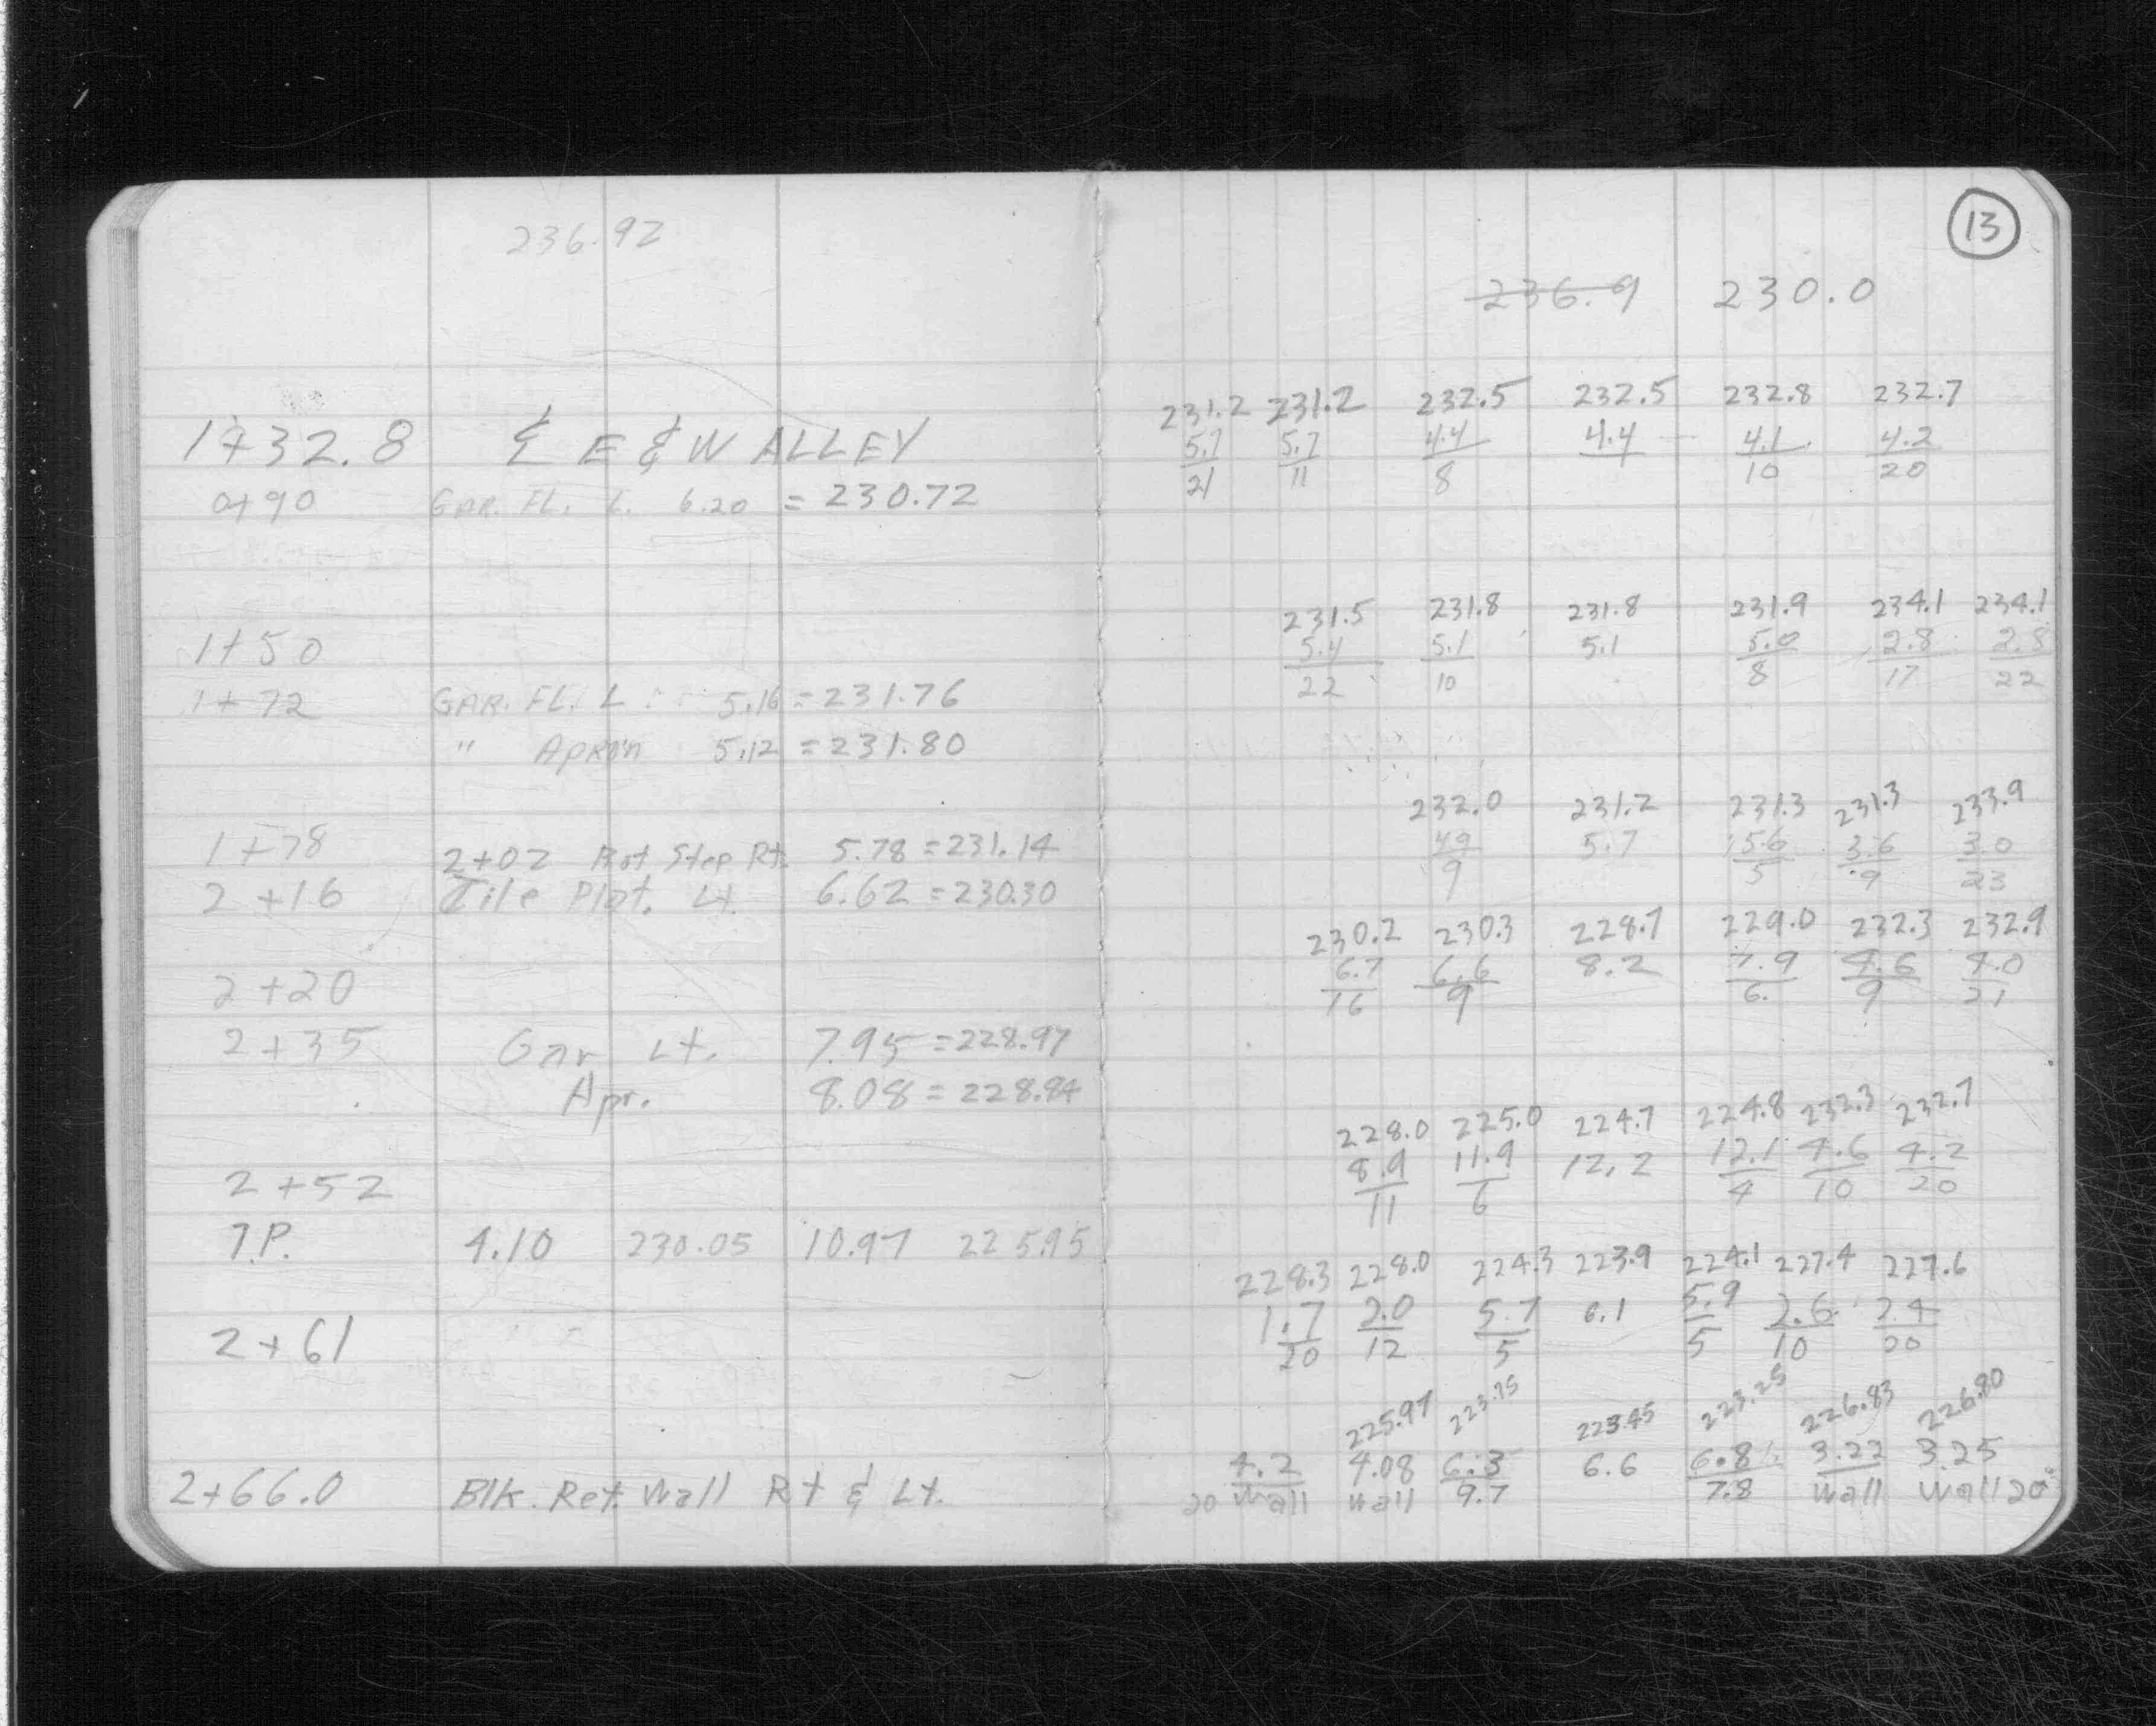 236.92
1+32.8 ℄ E & W ALLEY
0+90 GAR. FL. L. 6.20 = 230.72
1+50
1+72 GAR. FL. L. 5.16 = 231.76
" Apron 5.12 = 231.80
1+78 2+02 Bot Step Rt. 5.78 = 231.14
2+16 Tile Plat. Lt. 6.62 = 230.30
2+20
2+35 Gar Lt. 7.95 = 228.97
Apr. 8.08 = 228.84
2+52
T.P. 4.10 230.05 10.97 225.95
2+61
2+66.0 Blk. Ret. Wall Rt & Lt.
13
236.9 230.0
231.2 231.2 232.5 232.5 232.8 232.7
5.7 5.7 4.4 4.4 4.1 4.2
21 11 8 10 20
231.5 231.8 231.8 231.9 234.1 234.1
5.4 5.1 5.1 5.0 2.8 2.8
22 10 8 17 22
232.0 231.2 231.3 231.3 233.9
4.9 5.7 5.6 3.6 3.0
9 5 9 23
230.2 230.3 228.7 229.0 232.3 232.9
6.7 6.6 8.2 7.9 4.6 4.0
16 9 6 9 21
228.0 225.0 224.7 224.8 232.3 232.7
8.9 11.9 12.2 12.1 4.6 4.2
11 6 4 10 20
228.3 228.0 224.3 223.9 224.1 227.4 227.6
1.7 2.0 5.7 6.1 5.9 2.6 2.4
20 12 5 5 10 20
225.97 223.75 223.45 223.25 226.83 226.80
4.2 4.08 6.3 6.6 6.8 3.22 3.25
20 Wall Wall 9.7 7.8 Wall Wall 20